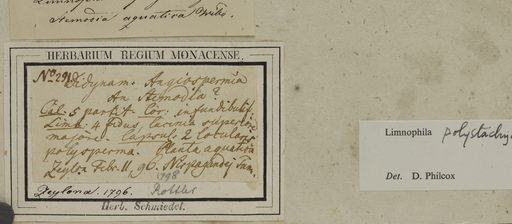 Stemodia aquatica Willd.
HERBARIUM REGIUM MONACENSE.
No 291. Didynam. Angiospermia
An Stemodia?
Cal. 5 partit. Cor. infundibulif.
Limb. 4 fidus, lacinia superiore
majori. Capsul. 2 locularis
polysperma. Planta aquatica
Zeyl. Febr. 11, 96.
Zeylona. 1796.
Rottler
Herb. Schmiedel.
Limnophila polystachya
Det. D. Philcox